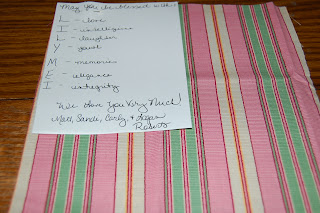 May you be blessed with
L - love
I - intelligence
L - laughter
Y -
M - memories
E - elegance
I - integrity
We Love You Very Much!
Matt, Sandi, Carly, & Logan